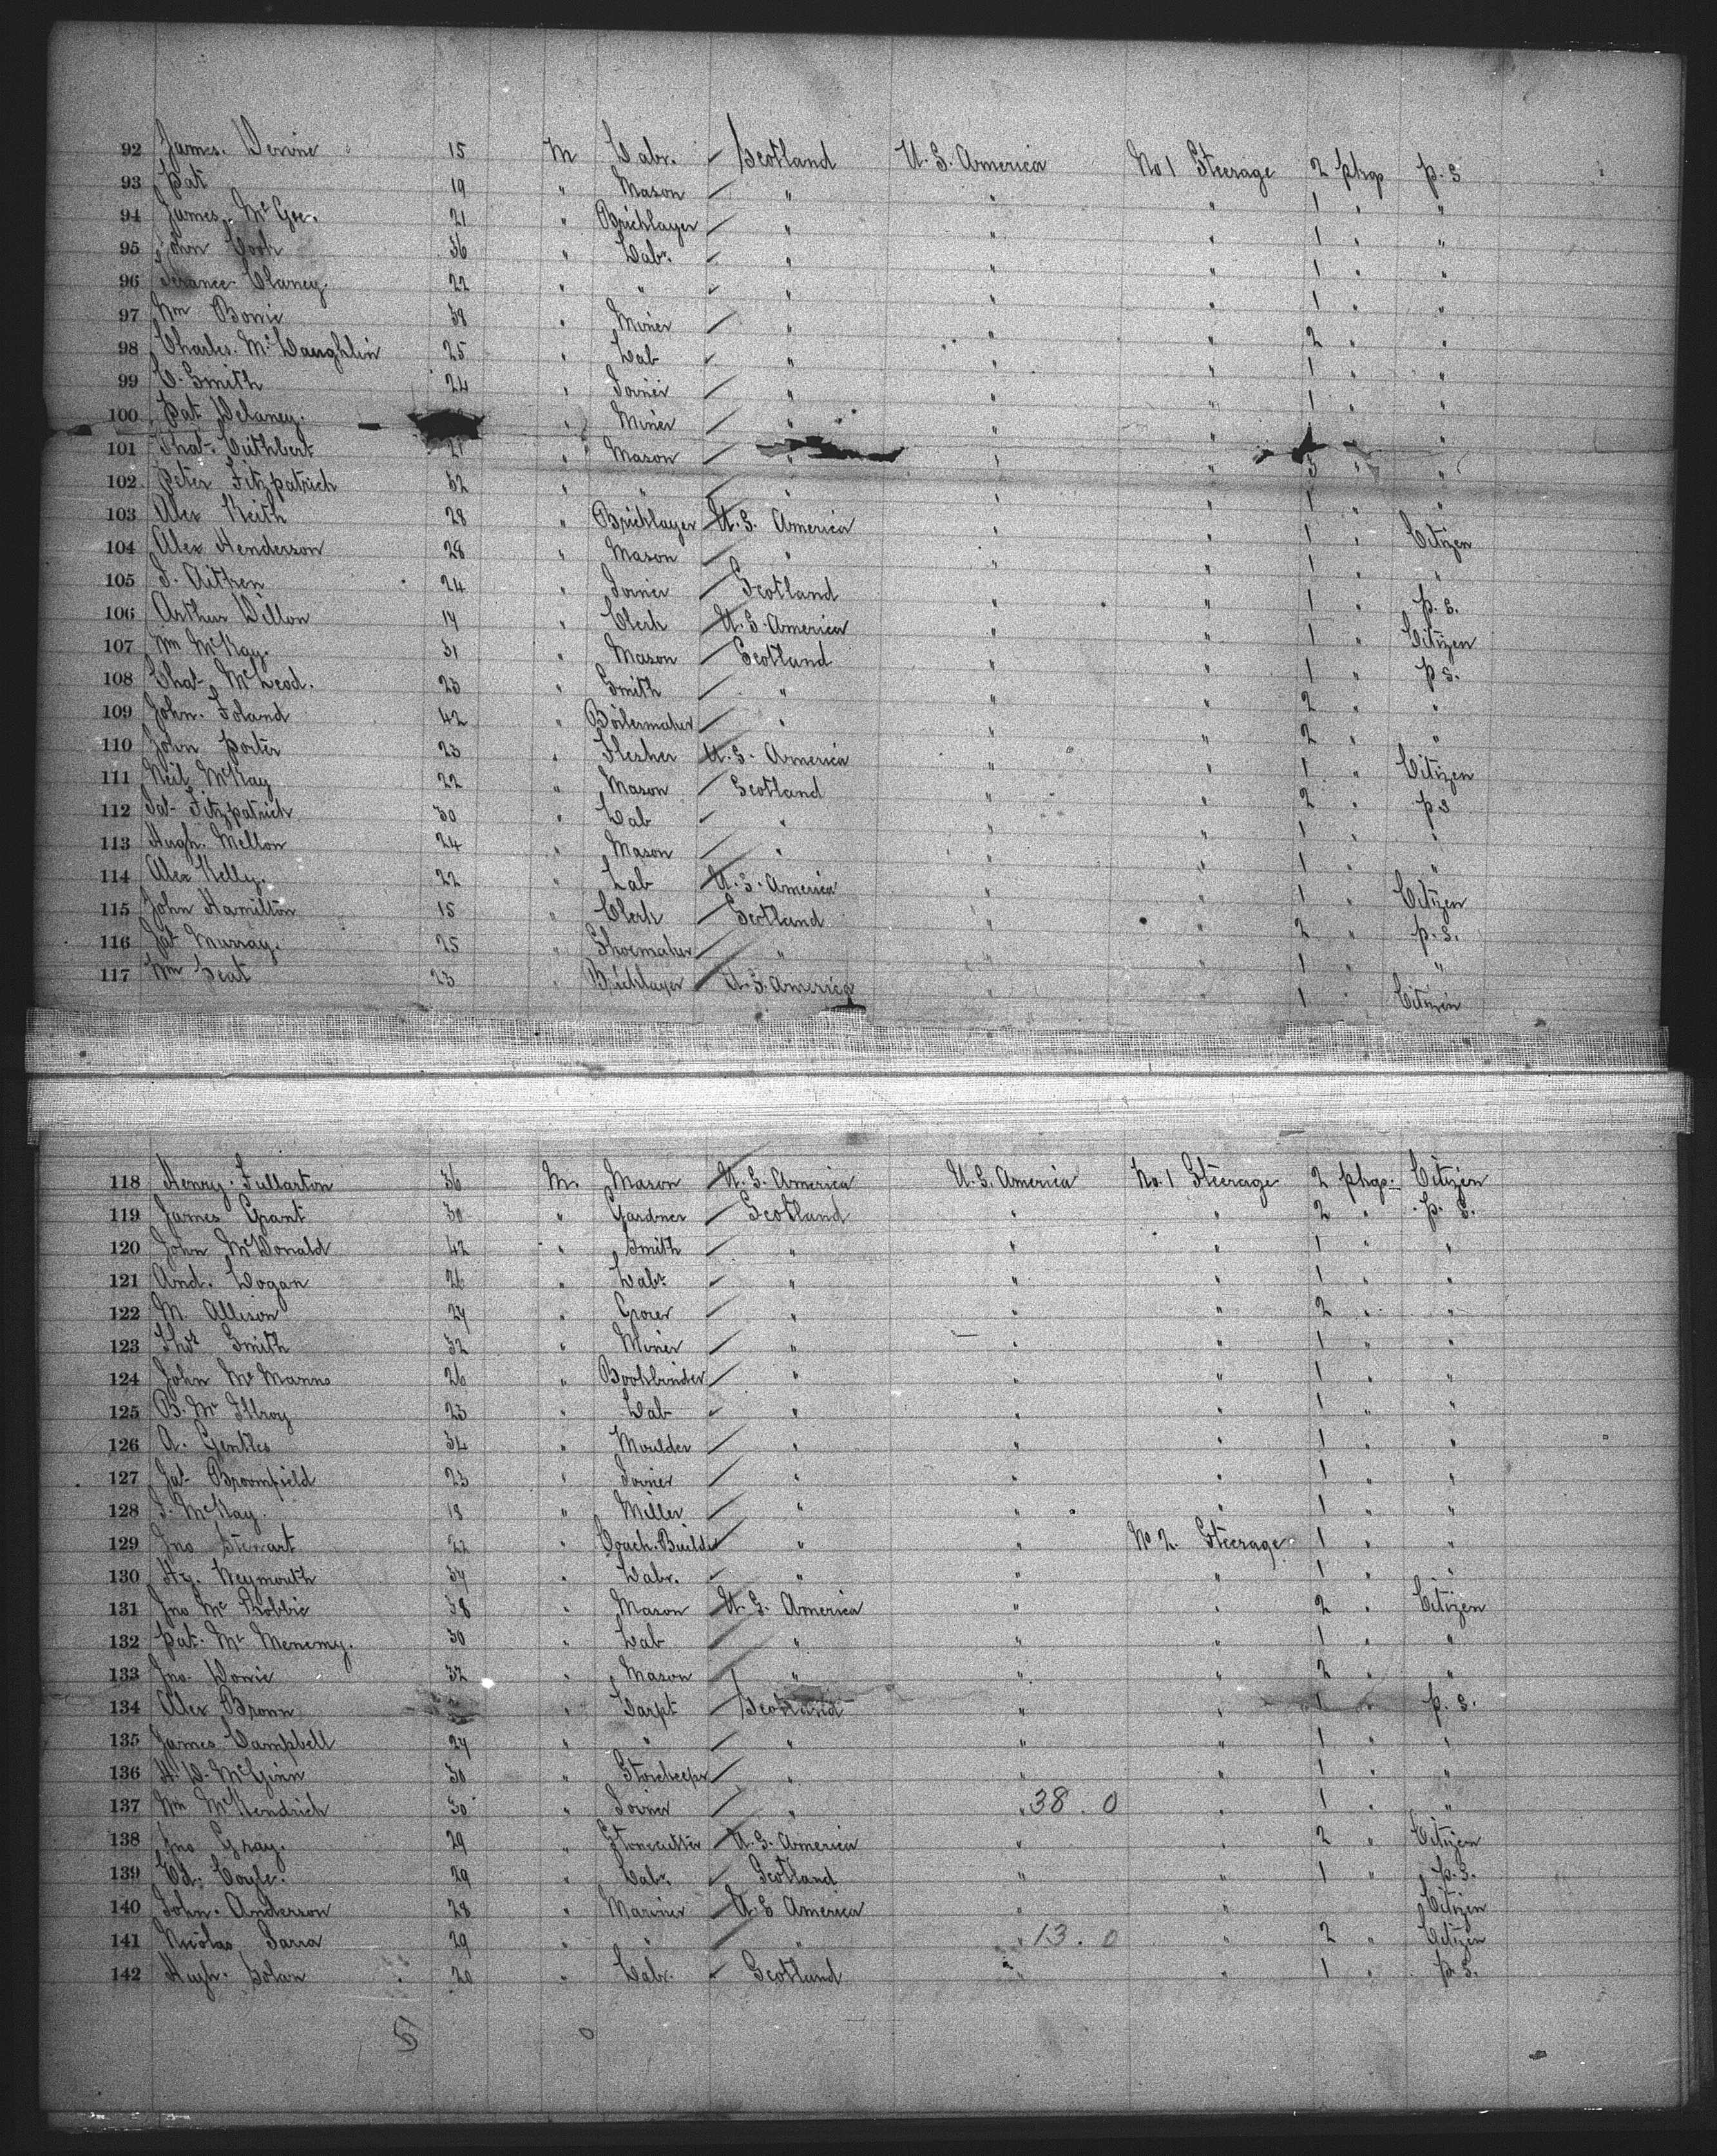 92 James. Devine 15 M Labr. Scotland U.S. America No 1 Steerage 2 pkgs p.s
93 Pat 19 " Mason " " " 1 " "
94 James. Mc Gee. 21 " Bricklayer " " " 1 " "
95 John Cook 36 " Labr. " " " 1 " "
96 Terance. Clancy. 22 " " " " " 1 " "
97 Wm 38 " Miner " " " 2 " "
98 Charles. McLaughlin 25 " Lab " " " 1 " "
99 C. Smith 24 " Joiner " " " 1 " "
100 Pat Delaney. " Miner " " " "
101 Thos. Cuthbert 21 " Mason " " " 3 " "
102 Peter Fitzpatrick 32 " " " " " 1 " "
103 Alex Keith 28 " Bricklayer U.S. America " " 1 " Citizen
104 Alex Henderson 28 " Mason " " " 1 " "
105 J. Aitken 24 " Joiner Scotland " " 1 " p.s.
106 Arthur Dillon 14 " Clerk U.S. America " " 1 " Citizen
107 Wm McKay. 31 " Mason Scotland " " 1 " p s.
108 Chas McLeod. 23 " Smith " " " 2 " "
109 John. Foland 42 " Boilermaker " " " 2 " "
110 John Porter 23 " Flesher U.S. America " " 1 " Citizen
111 Neil McKay 22 " Mason Scotland " " 2 " p s
112 Jas Fitzpatrick 30 " Lab " " " 1 " "
113 Hugh. Mellon 24 " Mason " " " 1 " "
114 Alex Kelly. 22 " Lab U.S. America " " 1 " Citizen
115 John Hamilton 15 " Clerk Scotland " " 2 " p.s.
116 Jas Murray. 25 " Shoemaker " " " 1 " "
117 Wm Peat 23 " Bricklayer U.S. America " " 1 " Citizen
118 Henry. Fullarton 36 M. Mason U.S. America U.S. America No. 1 Steerage 2 pkgs. Citizen
119 James Grant 30 " Gardner Scotland " " 2 " p. s.
120 John McDonald 42 " Smith " " " 1 " "
121 And. Logan 26 " Labr. " " " 1 " "
122 M. Allison 24 " Grocer " " " 2 " "
123 Thos Smith 32 " Miner " " " 1 " "
124 John McManus 26 " Bookbinder " " " 1 " "
125 B. Mc Ilroy 23 " Lab " " " 1 " "
126 A. Gentles 34 " Moulder " " " 1 " "
127 Jas Broomfield 23 " Joiner " " " 1 " "
128 J. McKay. 18 " Miller " " " 1 " "
129 Jno Stewart 22 " Coach. Builder " " No 2. Steerage 1 " "
130 Hy. Weymouth 34 " Labr. " " " 1 " "
131 Jno Mc Robbie 38 " Mason U.S. America " " 2 " Citizen
132 Pat. Mc Menemy. 30 " Lab " " " 1 " "
133 Jno. 32 " Mason " " " 2 " "
134 Alex Brown " Carpt Scotland " " 1 " p. s.
135 James. Campbell 24 " " " " " 1 " "
136 McGinn 30 " Storekeeper " " " 1 " "
137 Wm McKendrick 30 " Joiner " " 38 . 0 " 1 " "
138 Jno Gray. 29 " Stonecutter U.S. America " " 2 " Citizen
139 Ed. Coyle. 29 " Labr. Scotland " " 1 " p.s.
140 John. Anderson 28 " Mariner U.S America " " Citizen
141 Nicolas 29 " " " " 13 . 0 " 2 " Citizen
142 Hugh. 20 " Labr. Scotland " " 1 " p s.